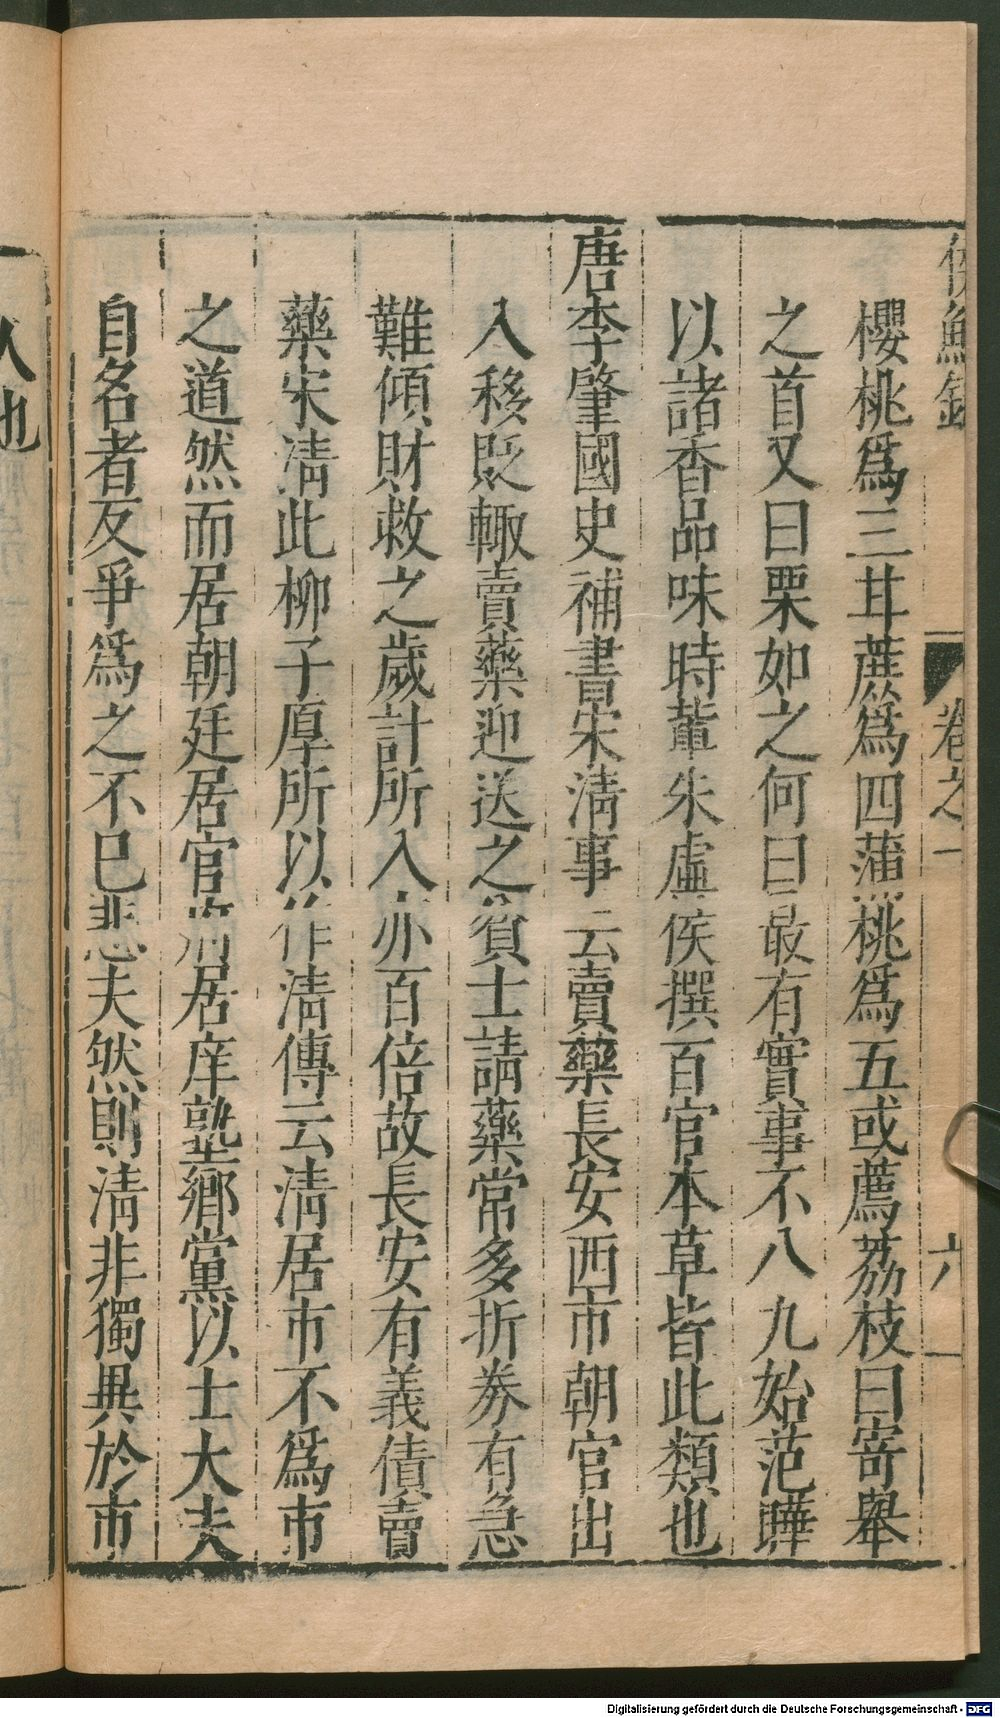 侯鯖録 卷之一 六
櫻桃爲三甘蔗爲四蒲桃爲五或薦荔枝曰寄舉
之首又曰栗如之何曰最有實事不八九始范曄
以諸香品味時輩朱虛侯撰百官本草皆此類也
唐李肇國史補書宋淸事云賣藥長安西市朝官出
入移貶輙賣藥迎送之貧士請藥常多折券有急
難傾財救之歲計所入亦百倍故長安有義債賣
藥宋淸此柳子厚所以作淸傳云淸居市不爲市
之道然而居朝廷居官府居庠塾鄉黨以士大夫
自名者反爭爲之不已悲夫然則淸非獨異於市
人也
Digitalisierung gefördert durch die Deutsche Forschungsgemeinschaft - DFG